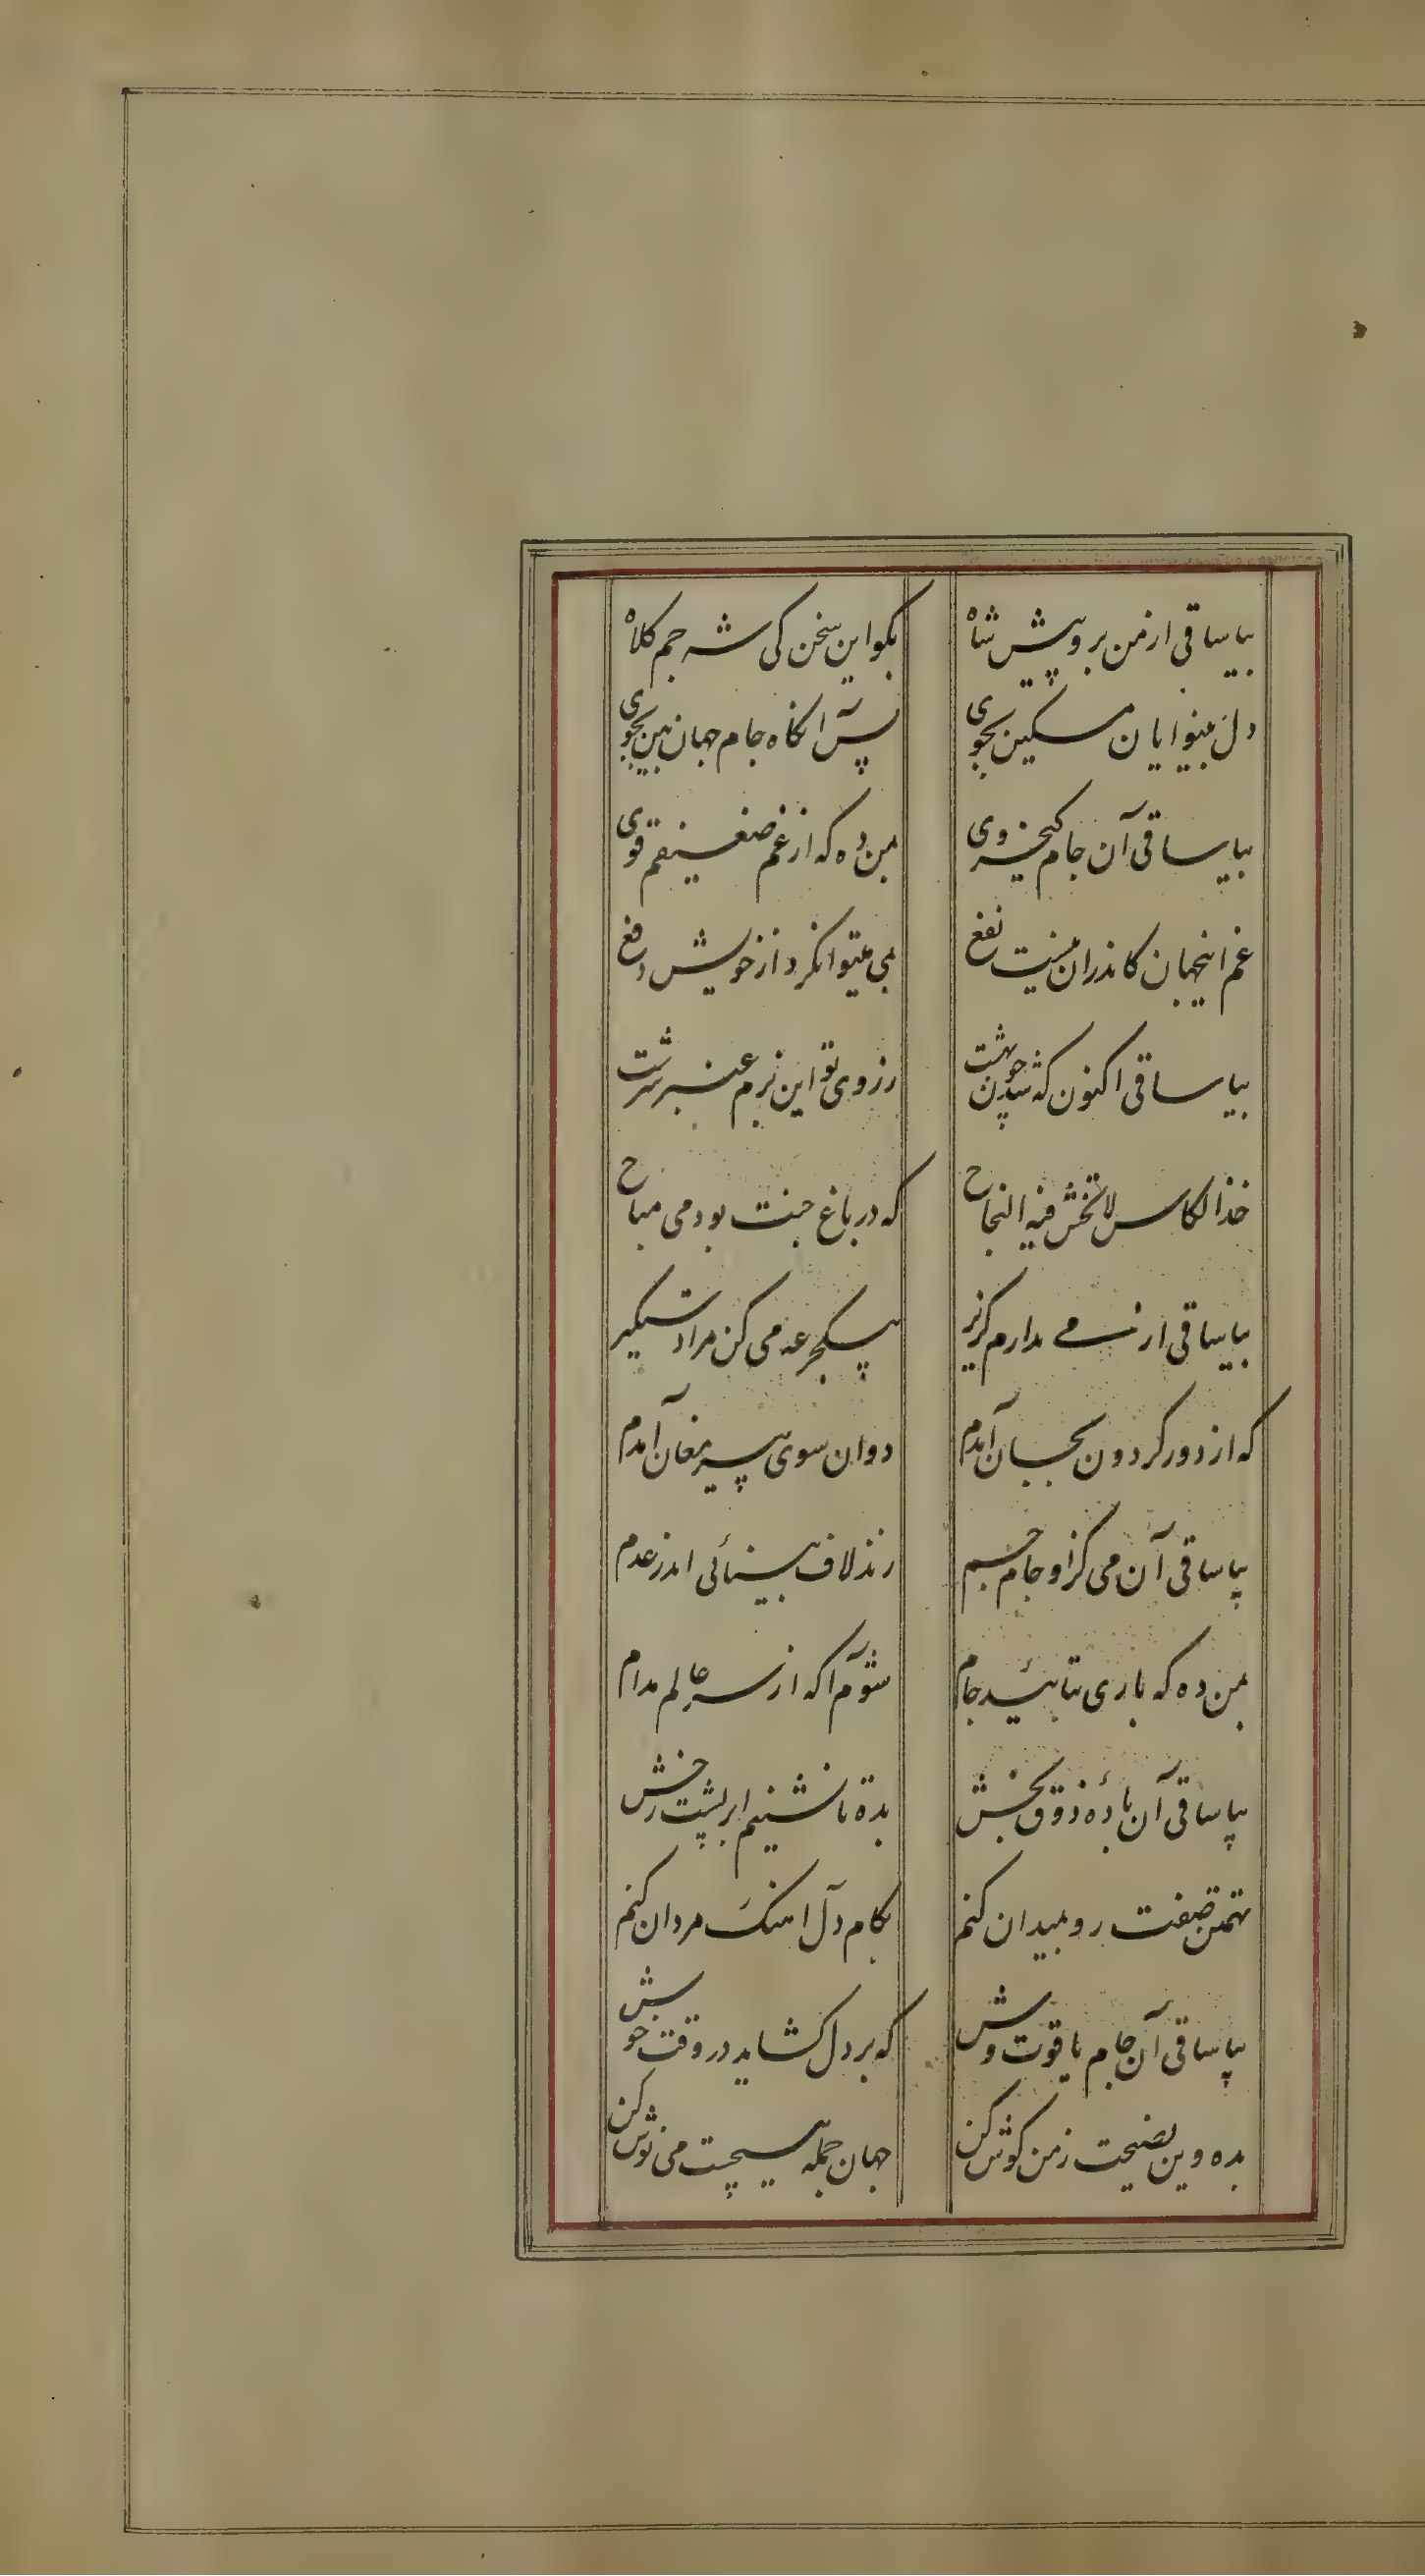 بیا ساقی از من برو پیش شاه بگو این سخن کی شه جم کلاه
دل بینوایان مسکین بجوی پس آنگاه جام جهان بین بجوی
بیا ساقی آن جام کیخسروی بمن ده که از غم ضعیفم قوی
غم اینجهان کاندران نیست نفع بمی میتوان کرد از خویش دفع
بیا ساقی اکنون که شد چون بهشت ز روی تو این بزم عنبر سرشت
خذ الکاس لا تخش فیه النجاح که در باغ جنت بود می مباح
بیا ساقی از می ندارم گریز بیکجرعه می کن مرا دستگیر
که از دور گردون بجان آمدم دوان سوی پیر مغان آمدم
بیا ساقی آن می کزو جام جم زند لاف بینائی اندر عدم
بمن ده که باری بتائید جام شوم آگه از سر عالم مدام
بیا ساقی آن بادهٔ ذوق بخش بده تا نشینم ابر پشت رخش
تهمتن صفت رو بمیدان کنم بکام دل آهنگ مردان کنم
بیا ساقی آن جام یاقوت وش که بر دل گشاید در وقت خوش
بده وین نصیحت ز من گوش کن جهان جمله هیچست می نوش کن